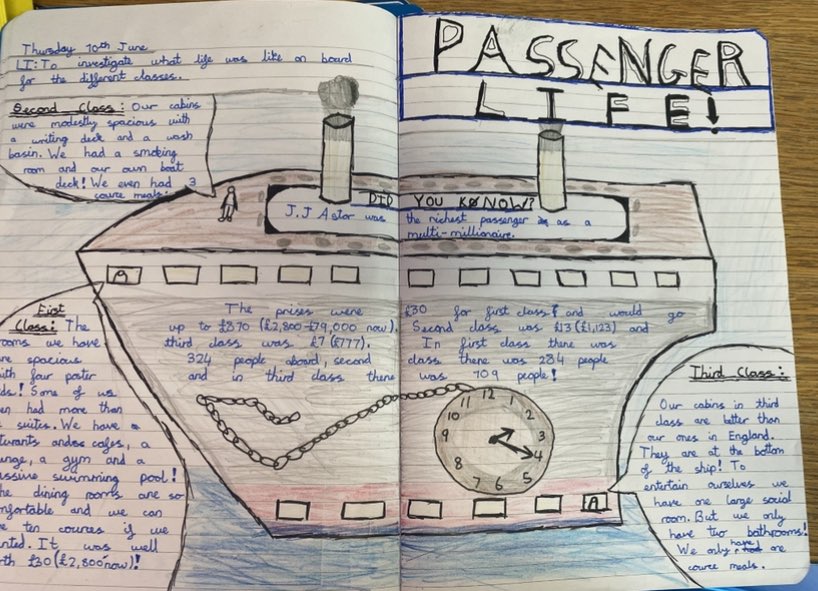 Thursday 10th June
LI: To investigate what life was like on board
for the different classes.
PASSENGER
LIFE!
Second Class: Our cabins
were modestly spacious with
a writing deck and a wash
basin. We had a smoking
room and our own boat
deck! We even had 3
cource meals.
DID YOU KNOW?
J.J Astor was the richest passenger as a
multi-millionaire.
The prises were £30 for first class and would go
up to £870 (£2,800-£79,000 now). Second class was £13 (£1,123) and
third class was £7 (£777). In first class there was
324 people aboard, second class there was 284 people
and in third class there was 709 people!
First
Class: The
rooms we have
are spacious
with four poster
Some of us
had more than
suites. We have
cafes, a
a gym and a
swimming pool!
dining rooms are so
and we can
ten cources if we
It was well
£30 (£2,800 now)!
12
1
2
3
4
5
6
7
8
9
10
11
Third Class:
Our cabins in third
class are better than
our ones in England.
They are at the bottom
of the ship! To
entertain ourselves we
have one large social
room. But we only
have two bathrooms!
We only have one
cource meals.